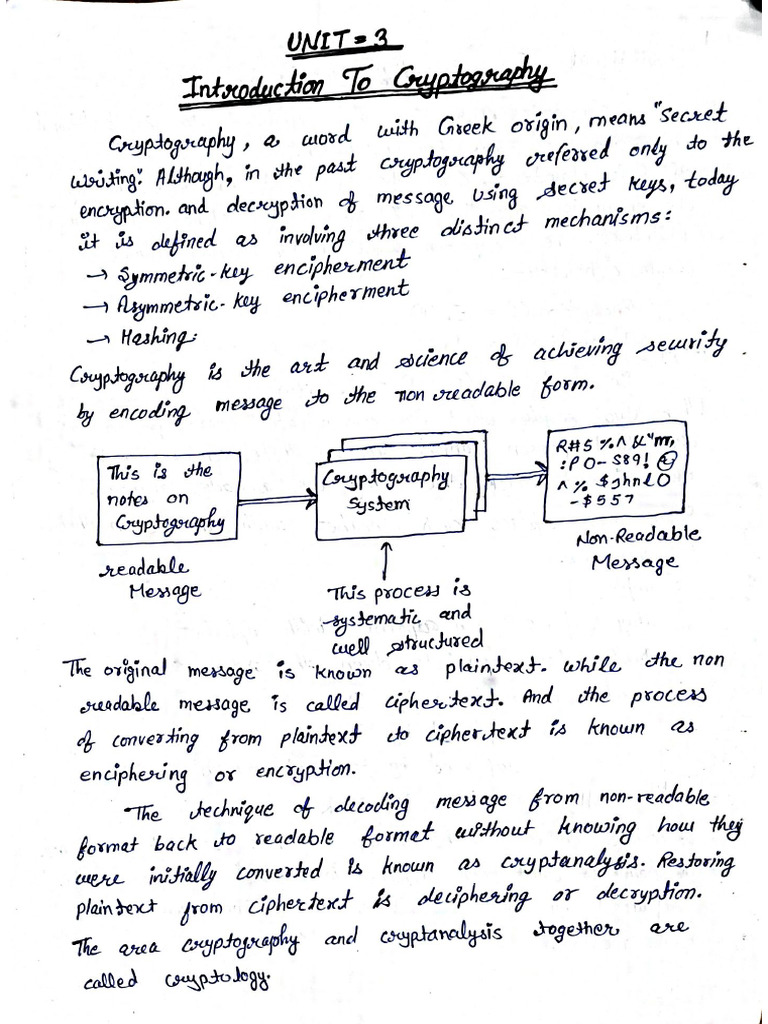 UNIT = 3
Introduction To Cryptography
Cryptography, a word with Greek origin, means "Secret
writing". Although, in the past cryptography referred only to the
encryption. and decryption of message using secret keys, today
it is defined as involving three distinct mechanisms:
→ Symmetric-key encipherment
→ Asymmetric-key encipherment
→ Hashing:
Cryptography is the art and science of achieving security
by encoding message to the non readable form.
This is the
notes on
Cryptography
Cryptography
System
R#5 %^ &"m,
:PO- S89!
^% $jhnlO
-$557
readable
Message
This process is
systematic and
well structured
Non-Readable
Message
The original message is known as plaintext. while the non
readable message is called ciphertext. And the process
of converting from plaintext to ciphertext is known as
enciphering or encryption.
The technique of decoding message from non-readable
format back to readable format without knowing how they
were initially converted is known as cryptanalysis. Restoring
plaintext from ciphertext is deciphering or decryption.
The area cryptography and cryptanalysis together are
called cryptology.